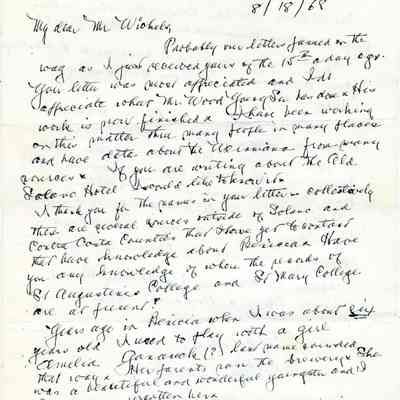 8/18/68
My dear Mr Wichels,
Probably our letters passed on the
way as I just received yours of the 15th a day ago.
Your letter was most appreciated and I do
appreciate what Mr. Wood Young Sr. has done. His
work is now finished. I have been working
on this matter thru many people in many places
and have data about the from many
sources. If you are writing about the Old
Solano Hotel I would like to know it.
I thank you for the names in your letter collectively
there are several sources outside of Solano and
Contra Costa Counties that I have yet to contact
that have knowledge about Benicia. Have
you any knowledge of where the records of
St Augustine's College and St Mary College
are at present?
Years ago in Benicia when I was about six
years old I used to play with a girl
Amelia (?) last name sounded
that way. Her parents ran the brewery. She
was a beautiful and wonderful youngster and I
written here